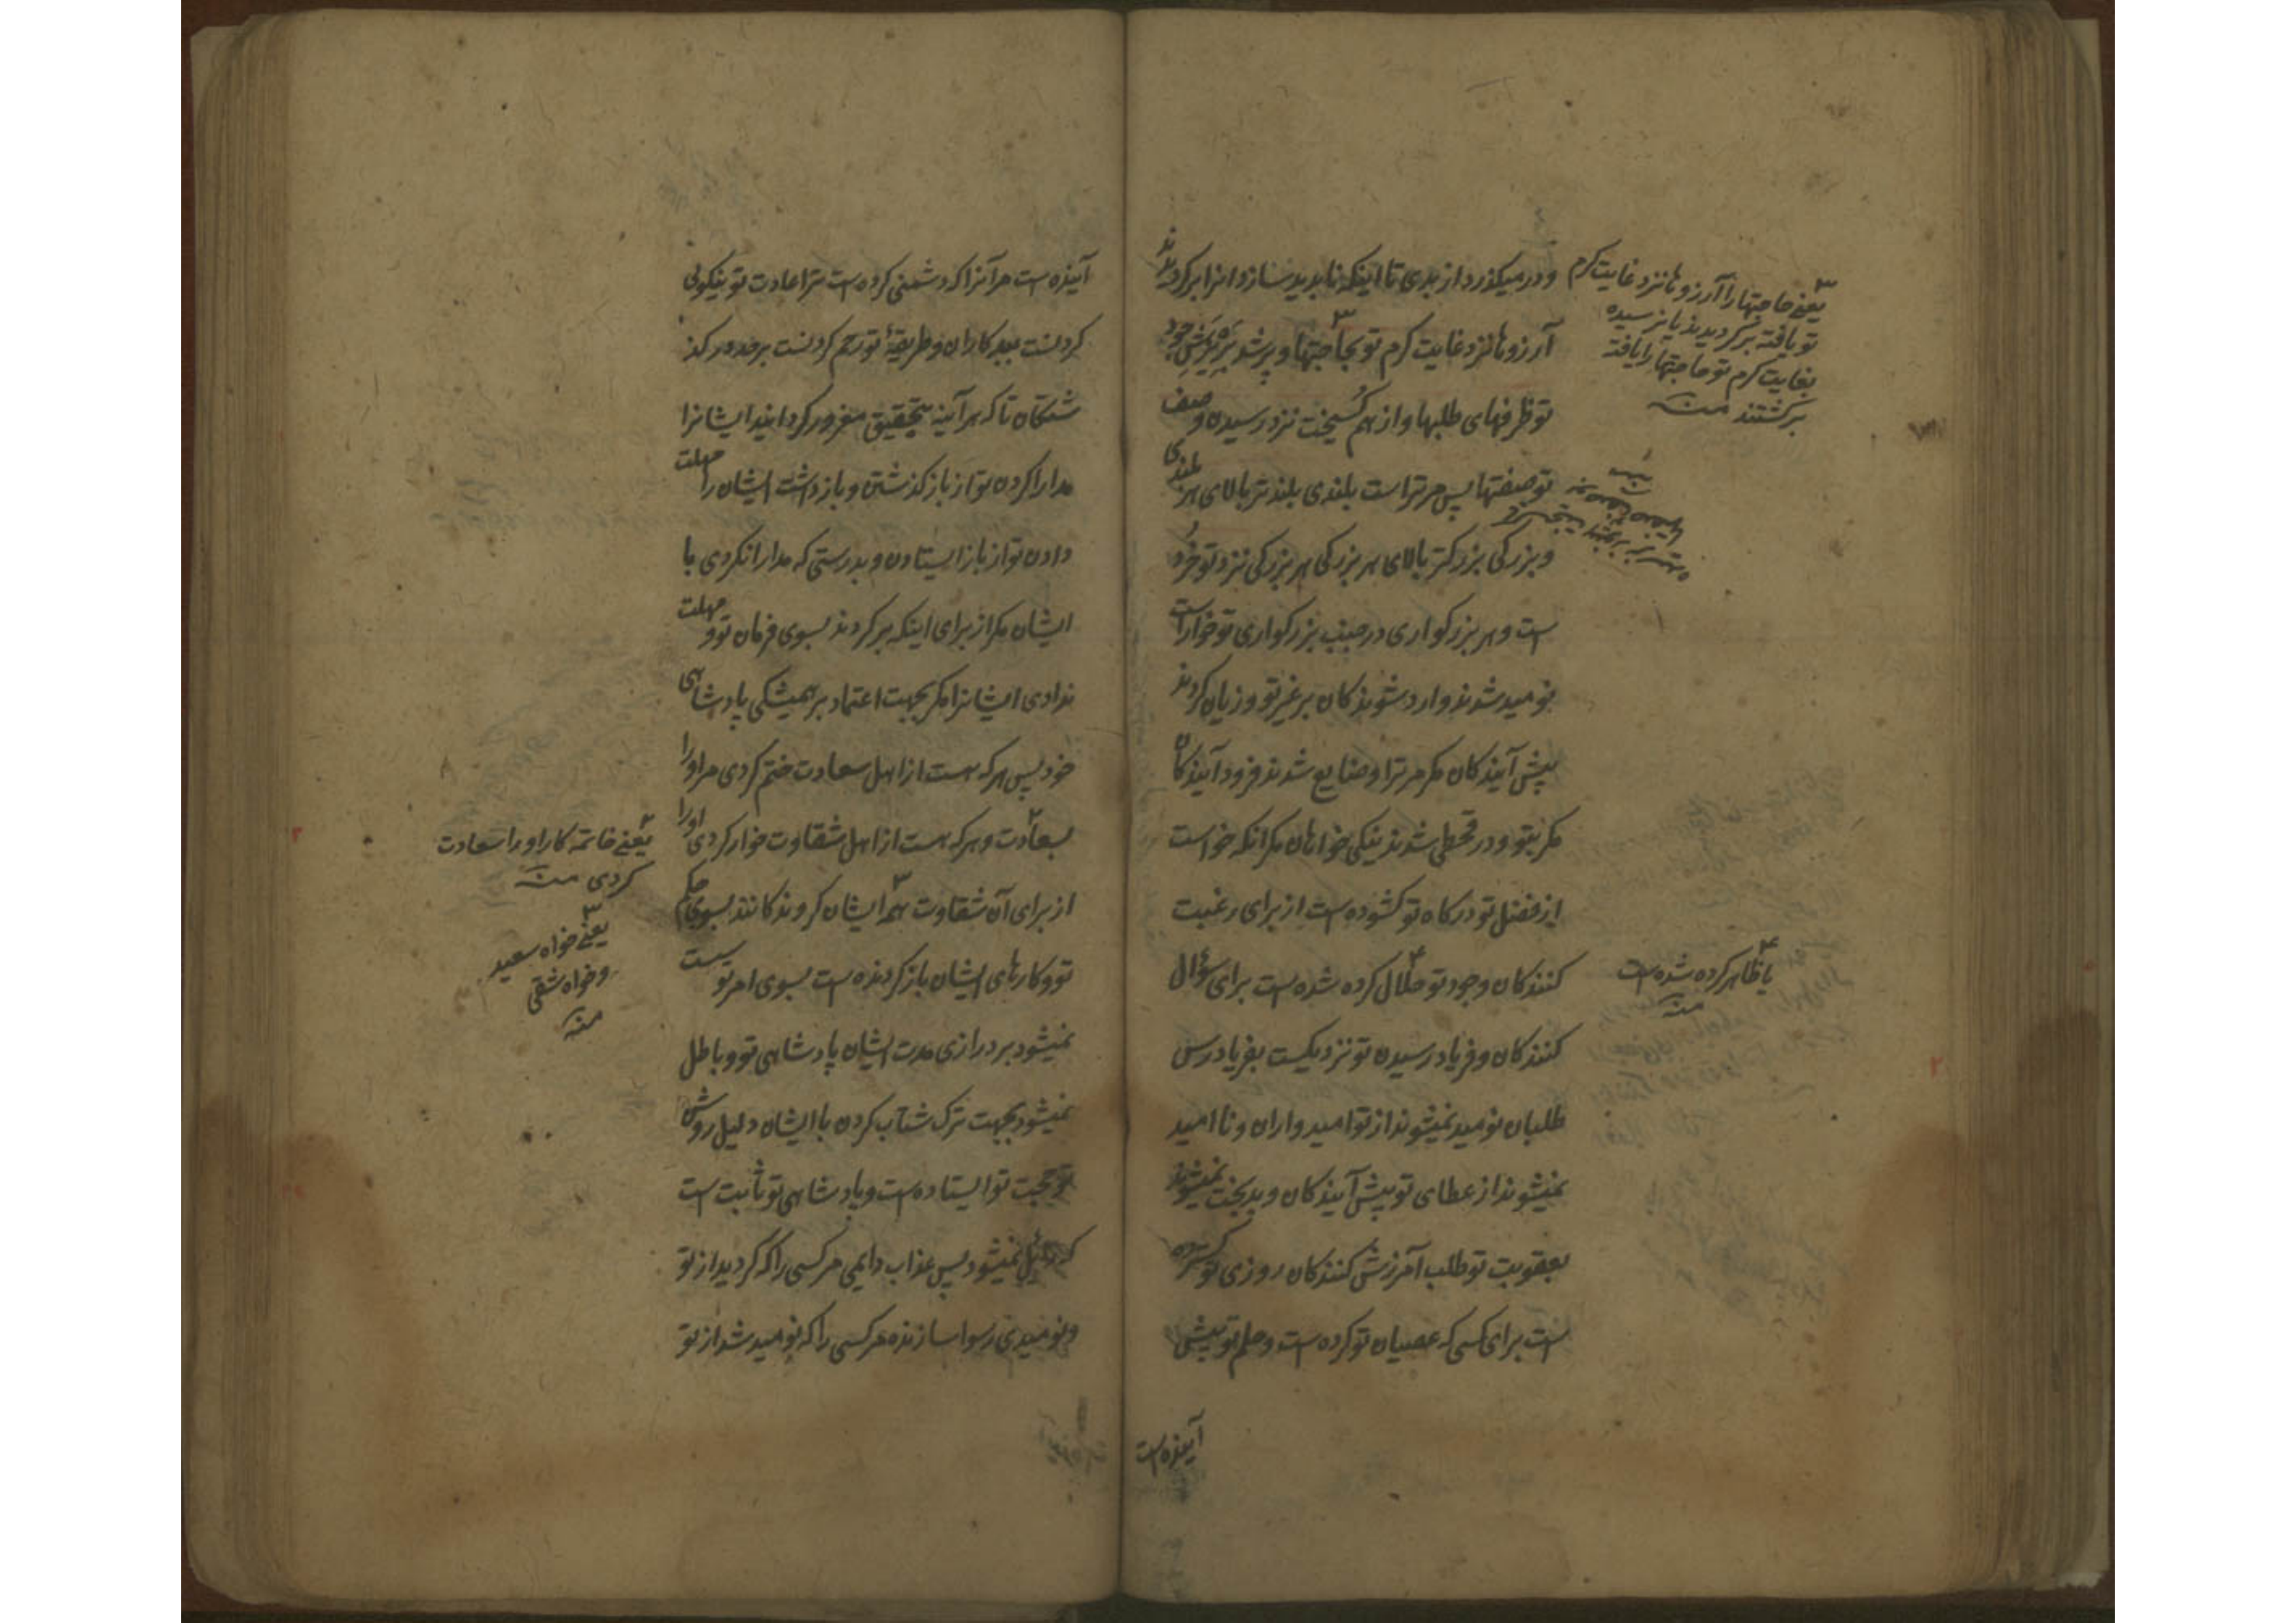 و درمیکذرد از بدی تا اینکه ناپدید سازد انرا برکردیدند
آرزوها نزد غایت کرم تو بحاجتها و پر شد بریزش جود
تو ظرفهای طلبها و از هم کسیخت نزد رسیدن وصف
تو صفتها پس مر تراست بلندی بلندتر بالای هر بلندی
و بزرکی بزرکتر بالای هر بزرکی هر بزرکی نزد تو خرد
است و هر بزرکواری در جنب بزرکواری تو خوار است
نومید شدند وارد شوندکان بر غیر تو و زیان کردند
پیش آیندکان مکر مر ترا و ضایع شدند فرود آیندکان
مکر بتو و در قحطی شدند نیکی خواهان مکر انکه خواست
از فضل تو درکاه تو کشوده است از برای رغبت
کنندکان وجود تو حلال کرده شده است برای سؤال
کنندکان و فریاد رسیدن تو نزدیکست بفریادرس
طلبان نومید نمیشوند از تو امیدواران و ناامید
نمیشوند از عطای تو پیش آیندکان و بدبخت نمیشوند
بعقوبت تو طلب آمرزش کنندکان روزی تو کسترده
است برای کسی که عصیان تو کرده است و حلم تو پیش
آینده است
یعنی حاجتها را آرزوها نزد غایت کرم
تو یافته برکردیدند یا نرسیده
بغایت کرم تو حاجتها را یافته
برکشتند منه
یا ظاهر کرده شده است
منه
آینده است مر آنرا که دشمنی کرده است ترا عادت تو نیکوئی
کردنست ببدکاران و طریقۀ تو رحم کردنست بر حد درکذ
شتکان تا که هر آینه بتحقیق مغرور کردانید ایشانرا
مدارا کردن تو از باز کذشتن و بازداشت ایشان را مهلت
دادن تو از باز ایستادن و بدرستی که مدارا نکردی با
ایشان مکر از برای اینکه برکردند بسوی فرمان تو و مهلت
ندادی ایشانرا مکر بجهت اعتماد بر همیشکی پادشاهی
خود پس هر که هست از اهل سعادت ختم کردی مر او را
بسعادت و هر که هست از اهل شقاوت خوار کردی او را
از برای آن شقاوت همه ایشان کروندکانند بسوی حکم
تو و کارهای ایشان باز کردنده است بسوی امر تو سست
نمیشود بر درازی مدت ایشان پادشاهی تو و باطل
نمیشود بجهت ترک شتاب کردن با ایشان دلیل روشن
تو حجت تو ایستاده است و پادشاهی تو ثابت است
که زایل نمیشود پس عذاب دایمی مر کسی را که کردید از تو
و نومیدی رسوا سازنده مر کسی را که نومید شد از تو
یعنی خاتمه کار او را سعادت
کردی منه
یعنی خواه سعید
و خواه شقی
منه